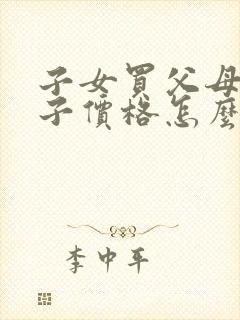 子女買父母
子價格怎麼
李中平